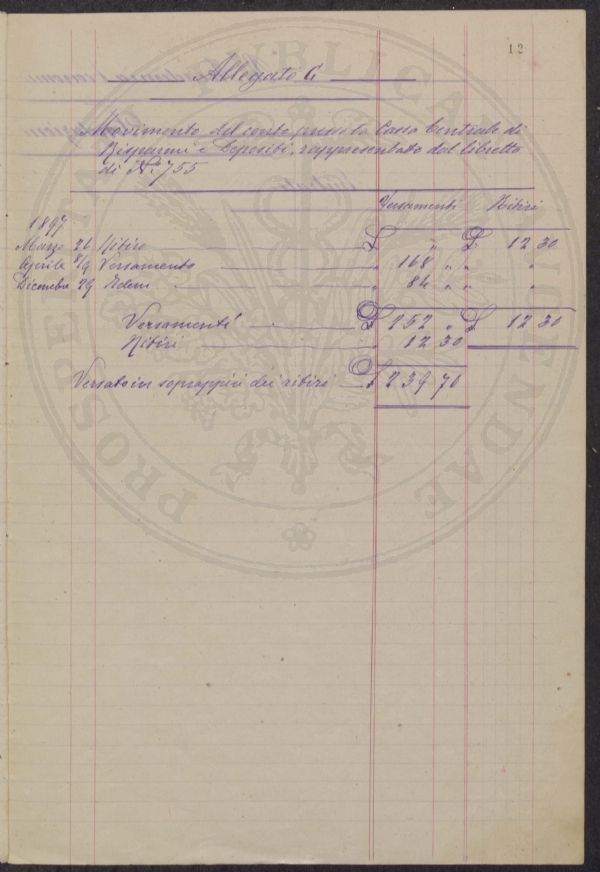 12
Allegato G
Movimento del conto presso la Cassa Centrale di
Risparmi e Depositi, rappresentato dal libretto
di N.º 755
Versamenti Ritiri
1897
Marzo 26 Ritiro £ " £ 12 30
Aprile 8/9 Versamento " 168 " " "
Dicembre 29 Idem " 84 " " "
Versamenti £ 252 " £ 12 30
Ritiri " 12 30
Versato in soprappiù dei ritiri £ 239 70
PROSPERITATI PUBLICAE AUGENDAE